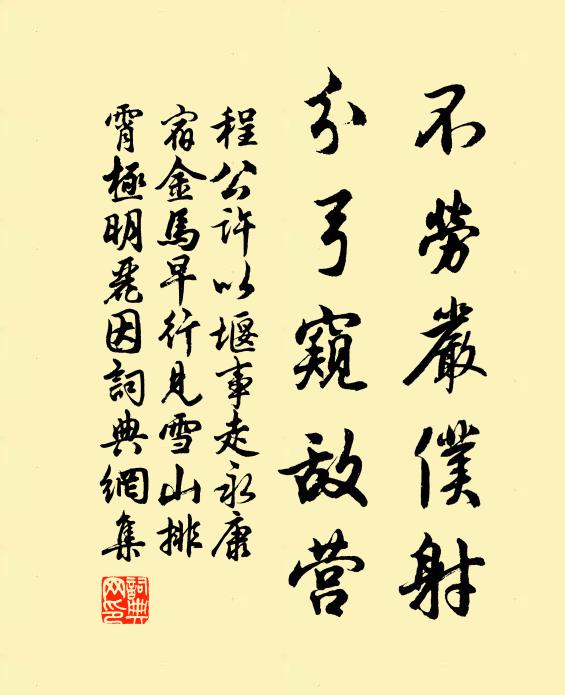 不勞嚴僕射
分弓窺敌营
程公許以堰事走永康
宿金馬早行見雪山排
霄極明麗因詞典網集
詞典
网印